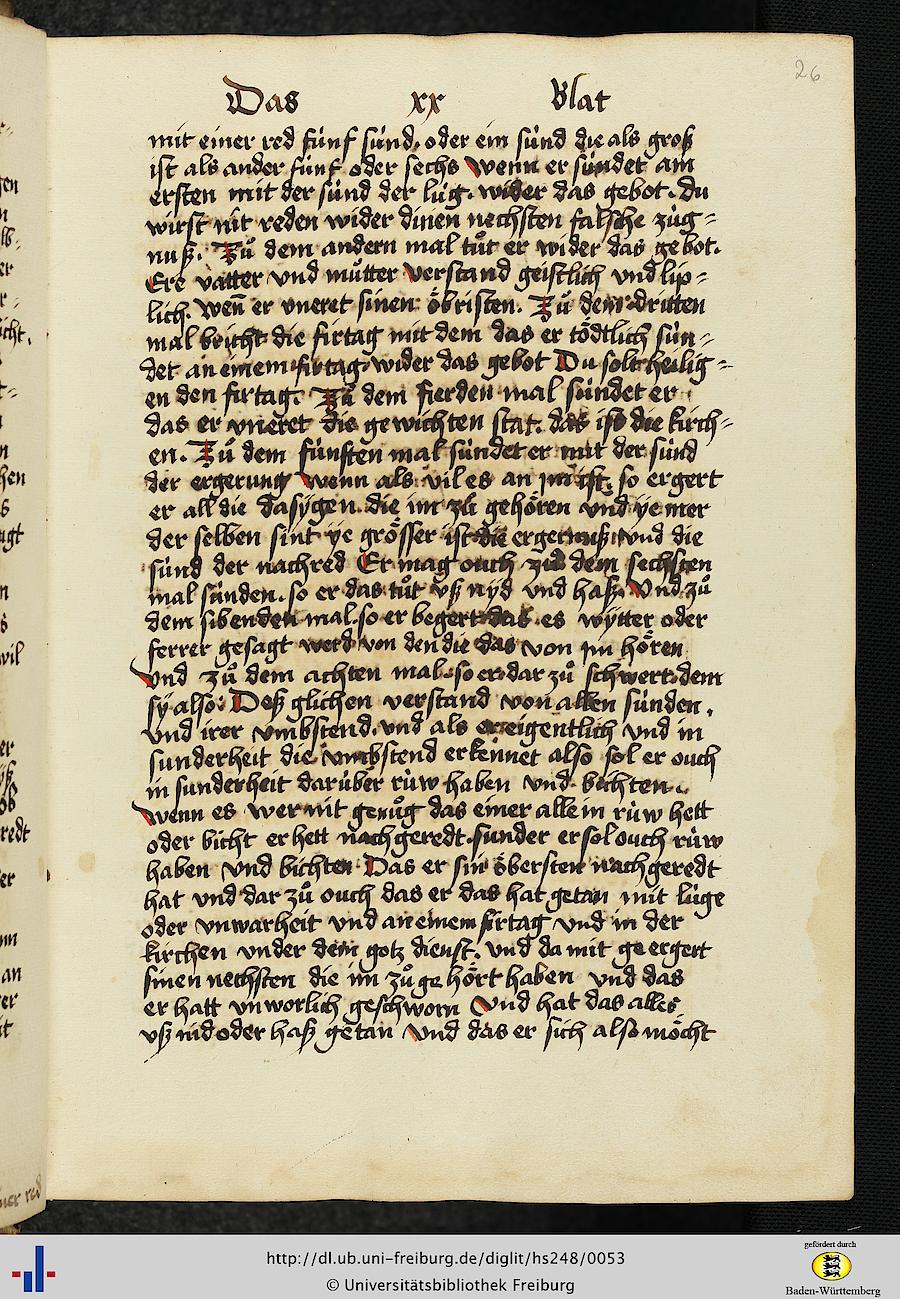 26
Das xx blat
mit einer red fünf sünd. oder ein sünd die als groß
ist als ander fünf oder sechs wenn er sündet am
ersten mit der sünd der lüg. wider das gebot. du
wirst nit reden wider dinen nechsten falsche züg-
nuß. Zů dem andern mal tůt er wider das gebot.
Ere vatter vnd můtter verstand geistlich vnd lip-
lich. wen̄ er vneret sinen öbristen. Zů dem dritten
mal bricht die firtag mit dem das er tödtlich sün-
det an einem firtag wider das gebot Du solt heilig-
en den firtag. Zů dem fierden mal sündet er
das er vneret die gewichten stat. das ist die kirch-
en. Zů dem fünften mal sündet er mit der sünd
der ergerung wenn als vil es an im ist. so ergert
er all die dasygen die im zů gehören vnd ye mer
der selben sint ye grösser ist die ergernuß vnd die
sünd der nachred Er mag ouch zů dem sechsten
mal sünden. so er das tůt vß nyd vnd haß. Vnd zů
dem sibenden mal. so er begert das es wytter oder
ferrer gesagt werd von den die das von im hören
vnd zů dem achten mal so er dar zů schwert. dem
sy also. Deß glichen verstand von allen sünden.
vnd irer vmbstend. vnd als er eigentlich vnd in
sunderheit die vmbstend erkennet also sol er ouch
in sunderheit darüber rüw haben vnd bichten.
wenn es wer nit genůg das einer allein rüw hett
oder bicht er hett nachgeredt. sunder er sol ouch rüw
haben vnd bichten Das er sin öbersten nachgeredt
hat vnd dar zů ouch das er das hat getan mit lüge
oder vnwarheit vnd an einem firtag vnd in der
kirchen vnder dem gotz dienst. vnd da mit ge ergert
sinen nechsten die im zů gehört haben vnd das
er hatt vnworlich geschworn Vnd hat das alles
vß nid oder haß getan vnd das er sich also möcht
http://dl.ub.uni-freiburg.de/diglit/hs248/0053
© Universitätsbibliothek Freiburg
gefördert durch
Baden-Württemberg